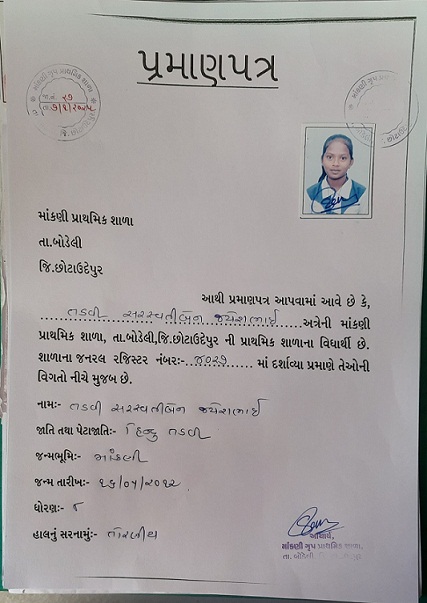 પ્રમાણપત્ર
માંકણી ગૃપ પ્રાથમિક શાળા
૨૭
માંકણી પ્રાથમિક શાળા
તા.બોડેલી
જિ.છોટાઉદેપુર
આથી પ્રમાણપત્ર આપવામાં આવે છે કે,
તડવી સરસ્વતીબેન જયેશભાઈ અત્રેની માંકણી
પ્રાથમિક શાળા, તા.બોડેલી,જિ.છોટાઉદેપુર ની પ્રાથમિક શાળાના વિધાર્થી છે.
શાળાના જનરલ રજિસ્ટર નંબર:- માં દર્શાવ્યા પ્રમાણે તેઓની
વિગતો નીચે મુજબ છે.
નામ:- તડવી સરસ્વતીબેન જયેશભાઈ
જાતિ તથા પેટાજાતિ:- હિન્દુ તડવી
જન્મભૂમિ:- માંકણી
જન્મ તારીખ:- ૨૦૧૨
ધોરણ:- ૮
હાલનું સરનામું:-
આચાર્ય,
માંકણી ગૃપ પ્રાથમિક શાળા,
તા. બોડેલી